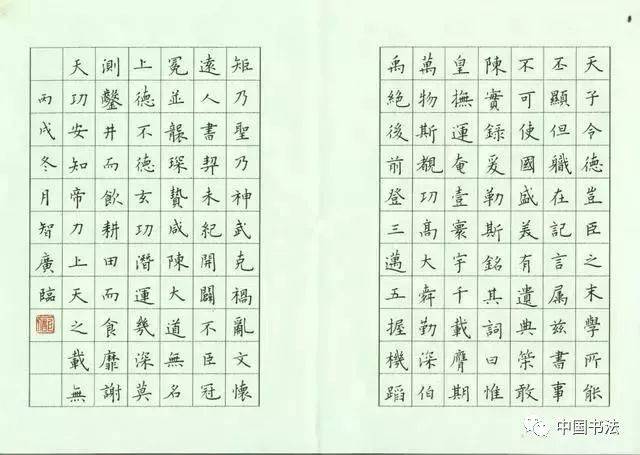 天子令德豈臣之末學所能
丕顯但職在記言属兹書事
不可使國盛美有遺典策敢
陳實録爰勒斯銘其詞曰惟
皇撫運奄壹寰宇千載膺期
萬物斯覩功髙大舜勤深伯
禹絶後前登三邁五握機蹈
矩乃聖乃神武克禍亂文懷
遠人書契未紀開闢不臣冠
冕並襲琛贄咸陳大道無名
上德不德玄功潛運幾深莫
測鑿井而飲耕田而食靡謝
天功安知帝力上天之載無
丙戌冬月智廣臨
中国书法